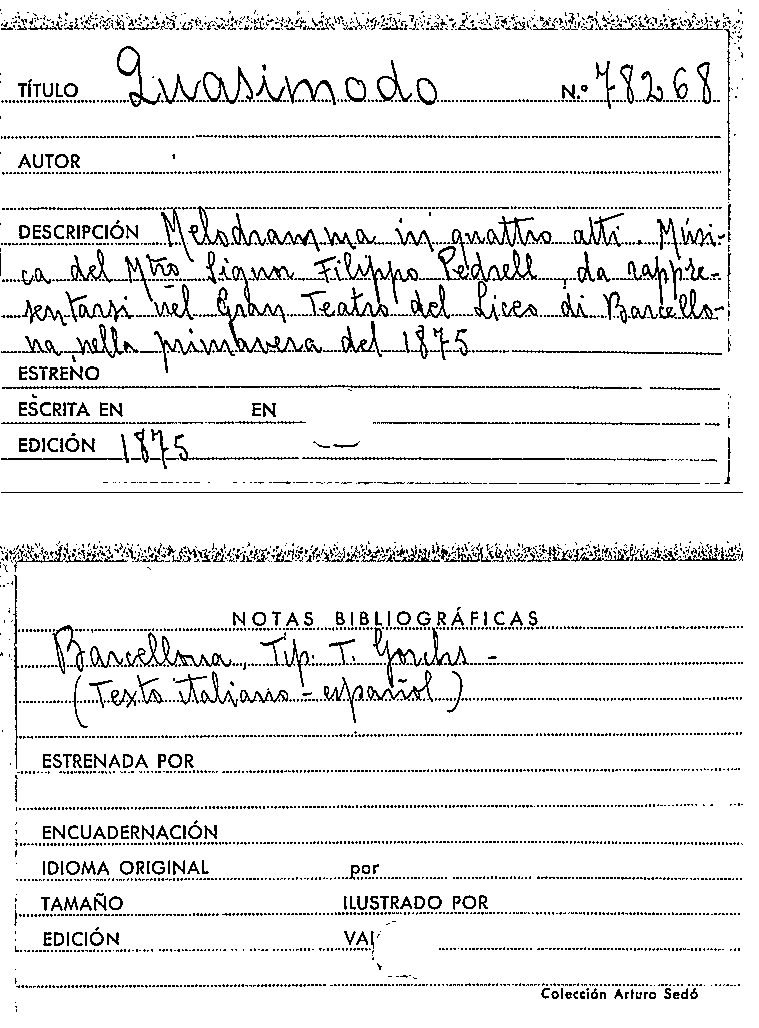 TÍTULO Quasimodo N.º 78268
AUTOR
DESCRIPCIÓN Melodramma in quattro atti. Músi-
ca del Mtro Signor Filippo Pedrell da rappre-
sentarsi nel Gran Teatro del Liceo di Barcello-
na nella primavera del 1875
ESTRENO
ESCRITA EN EN
EDICIÓN 1875
NOTAS BIBLIOGRÁFICAS
Barcellona, Tip. T. Gorchs -
(Texto italiano - español)
ESTRENADA POR
ENCUADERNACIÓN
IDIOMA ORIGINAL por
TAMAÑO ILUSTRADO POR
EDICIÓN VA
Colección Arturo Sedó